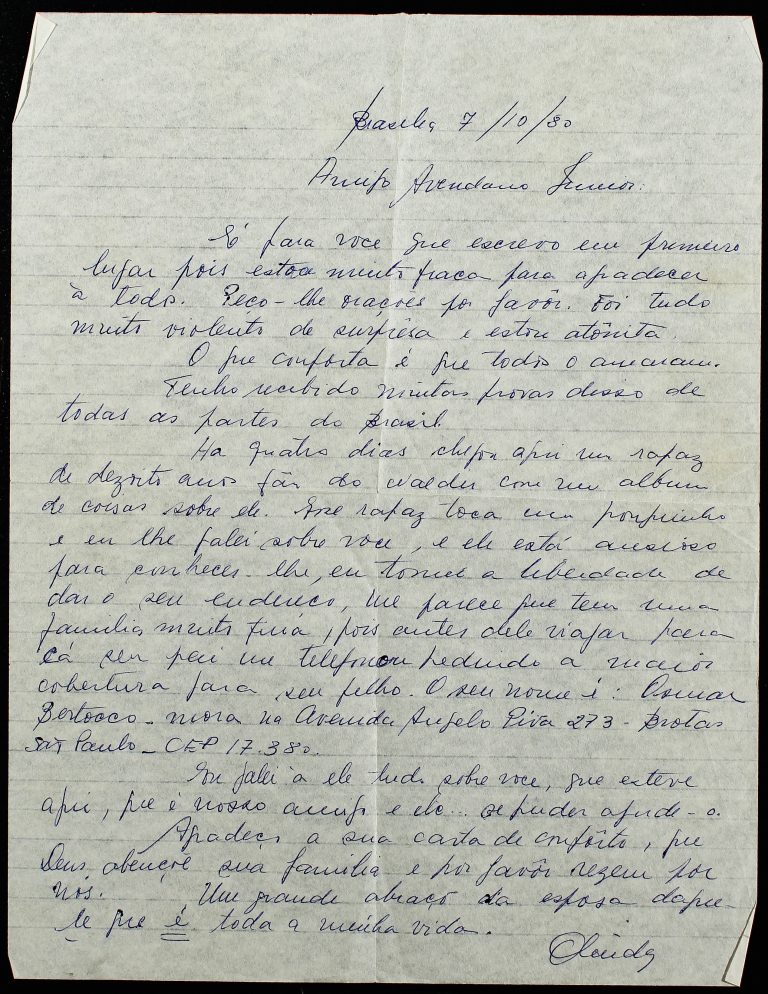 Brasilia 7/10/80
Amigo Avendano Junior:
Só para voce que escrevo em primeiro
lugar pois estou muito fraca para agradecer
à todos. Peço-lhe orações por favôr. Foi tudo
muito violento de surprêsa e estou atônita.
O que conforta é que todos o amavam.
Tenho recibido muitas provas disso de
todas as partes do Brasil.
Ha quatro dias chegou aqui um rapaz
de dezoito anos fãn do Waldir com um album
de coisas sobre ele. Esse rapaz toca um pouquinho
e eu lhe falei sobre voce, e ele está ansioso
para conhecer-lhe, eu tomei a liberdade de
dar o seu endereço, me parece que tem uma
familia muito fina, pois antes dele viajar para
cá seu pai me telefonou pedindo a maior
cobertura para seu filho. O seu nome é: Osmar
Bertocco - mora na Avenida Angelo Piva 273 - Brotas
São Paulo - CEP 17.380.
Eu falei a ele tudo sobre voce, que esteve
aqui, que é nosso amigo e etc... se puder ajude-o.
Agradeço a sua carta de confôrto, que
Deus abençoe sua familia e por favôr rezem por
nós. Um grande abraço da esposa daque-
le que é toda a minha vida.
Olinda